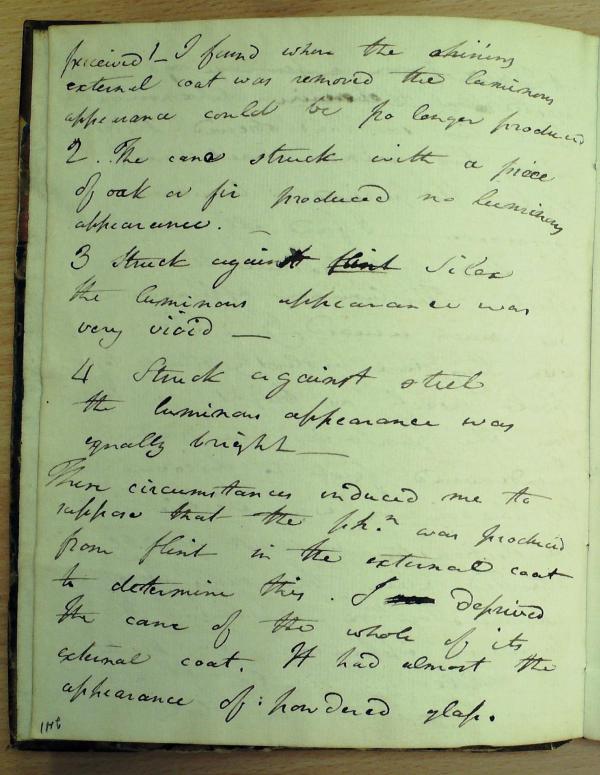 perceived! - I found when the shining
external coat was removed the luminous
appearance could be no longer produced
2. The cane struck with a piece
of oak or fir produced no luminous
appearance. —
3 Struck against flint Silex
the luminous appearance was
very vivid —
4 Struck against steel
the luminous appearance was
equally bright —
These circumstances induced me to
suppose that the phn. was produced
from flint in the external coat
to determine this. I deprived
the cane of the whole of its
external coat. It had almost the
appearance of: powdered glass.